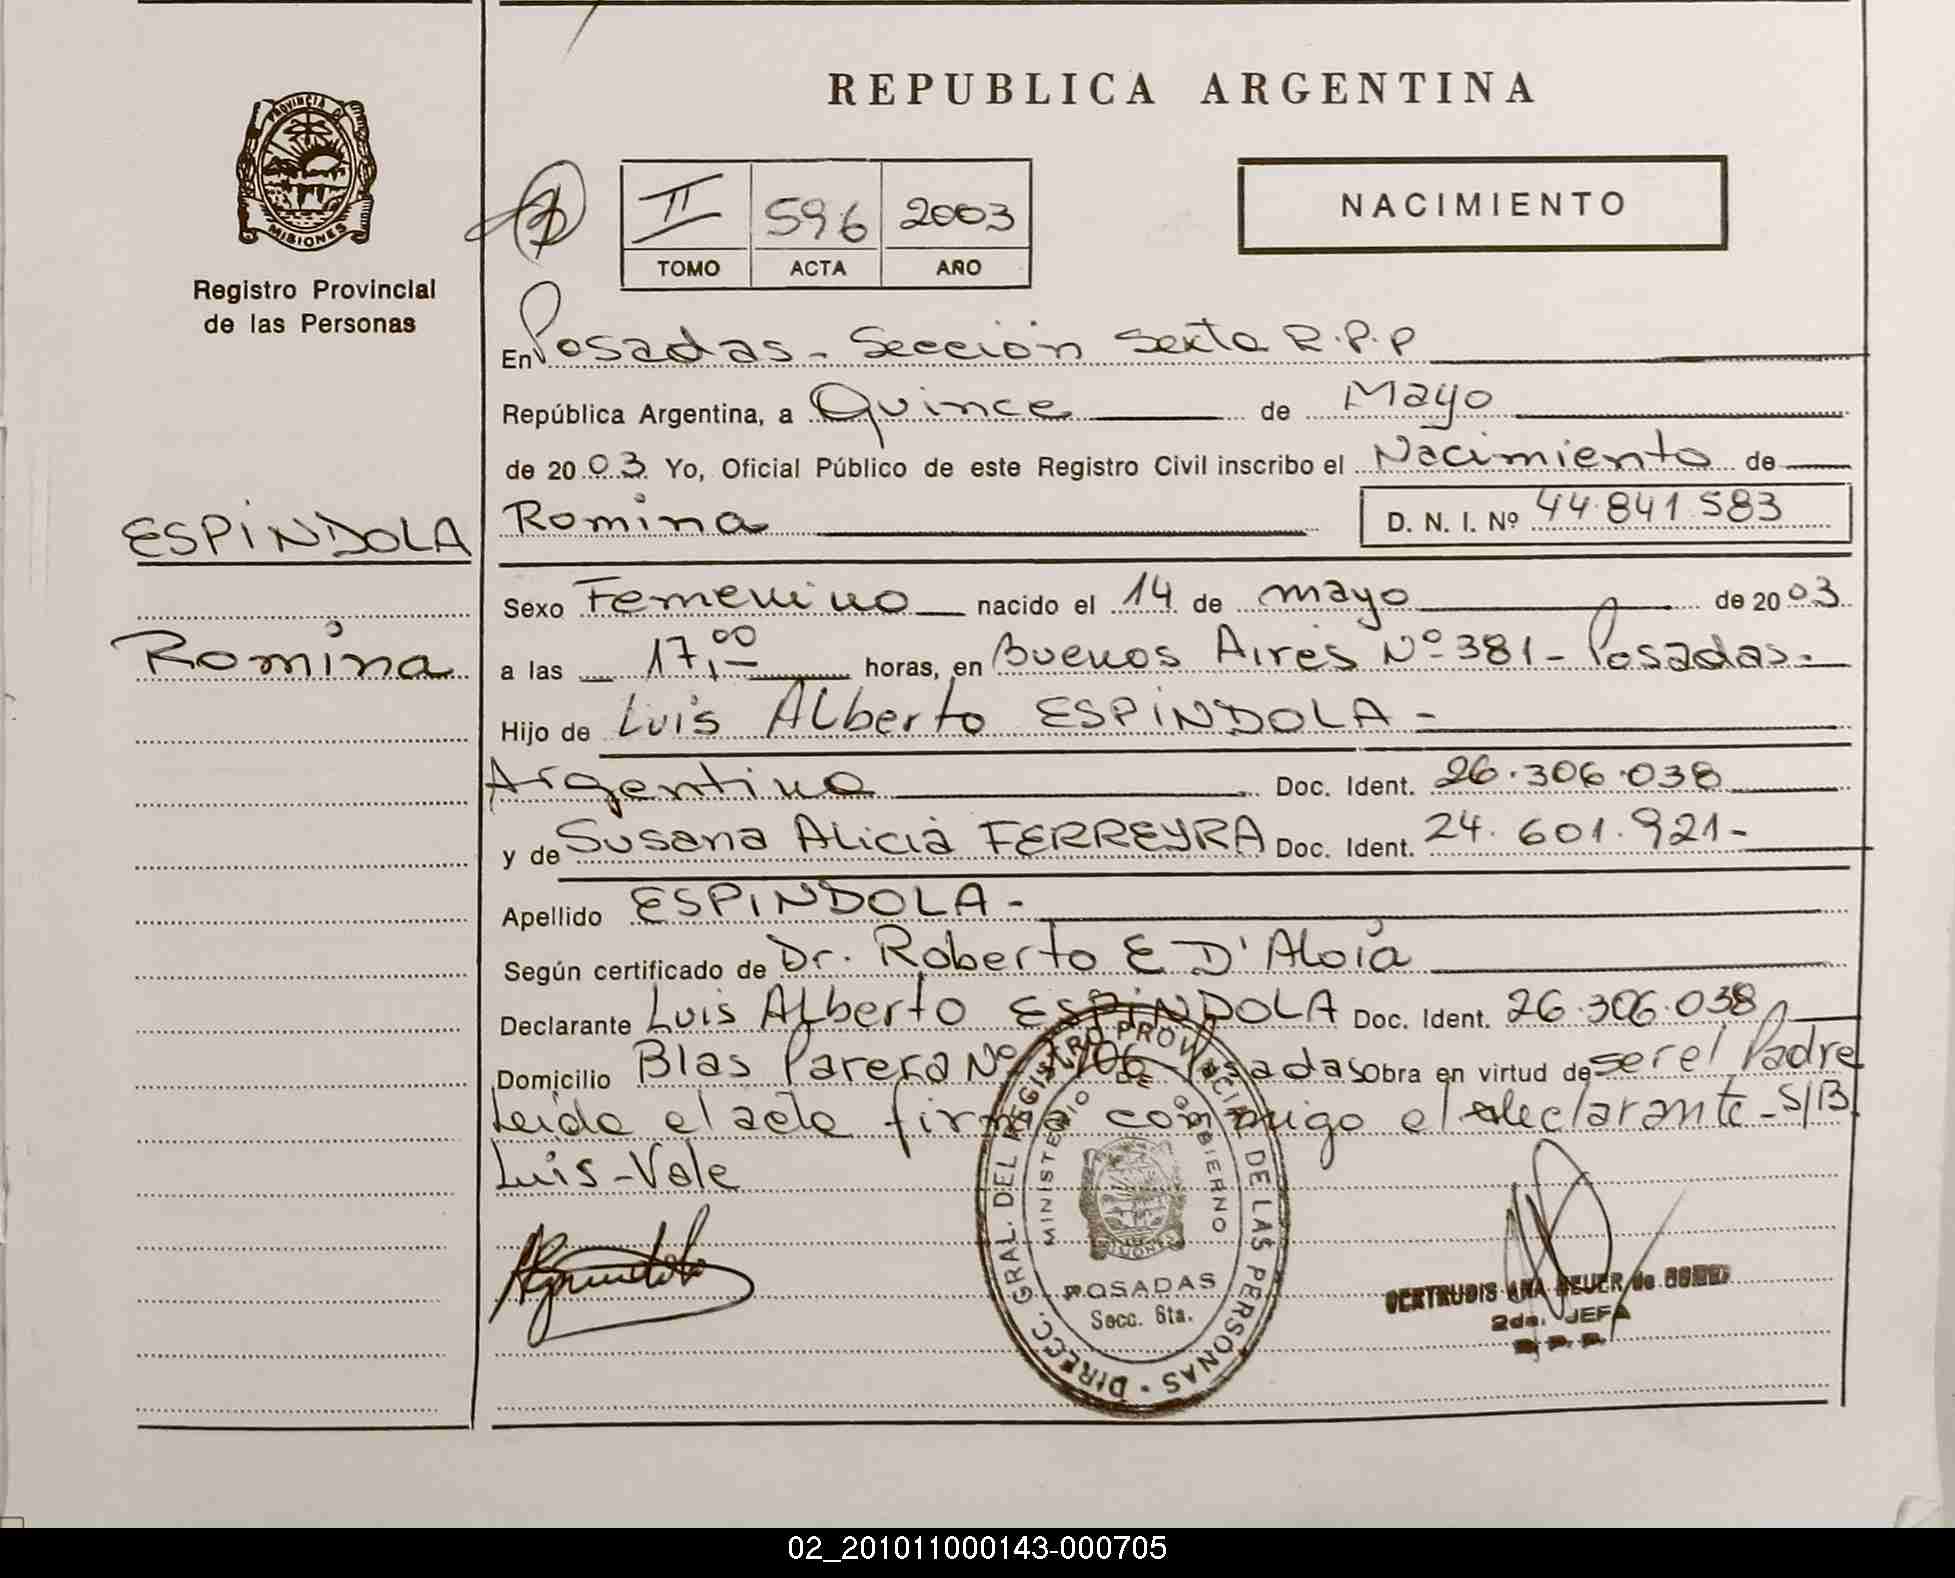 REPUBLICA ARGENTINA
PROVINCIA DE
MISIONES
Registro Provincial
de las Personas
II 596 2003
TOMO ACTA AÑO
NACIMIENTO
En Posadas - Sección Sexta R.P.P
República Argentina, a Quince de Mayo
de 20 03 Yo, Oficial Público de este Registro Civil inscribo el Nacimiento de
ESPíNDOLA
Romina
Romina D. N. I. Nº 44.841.583
Sexo Femenino nacido el 14 de mayo de 20 03
a las 17,00 horas, en Buenos Aires Nº 381 - Posadas.
Hijo de Luis Alberto ESPíNDOLA -
Argentino Doc. Ident. 26.306.038
y de Susana Alicia FERREYRA Doc. Ident. 24.601.921-
Apellido ESPINDOLA -
Según certificado de Dr. Roberto E D'Aloia
Declarante Luis Alberto ESPíNDOLA Doc. Ident. 26.306.038
Domicilio Blas Parera Nº Posadas Obra en virtud de ser el Padre
Leida el acta firma conmigo el declarante - S/B
Luis - Vale
DIRECC. GRAL. DEL REGISTRO PROVINCIAL DE LAS PERSONAS
MINISTERIO DE GOBIERNO
MISIONES
POSADAS
Secc. 6ta.
GERTRUDIS ANA NEUER de
2da. JEFA
R. P. P.
02_201011000143-000705